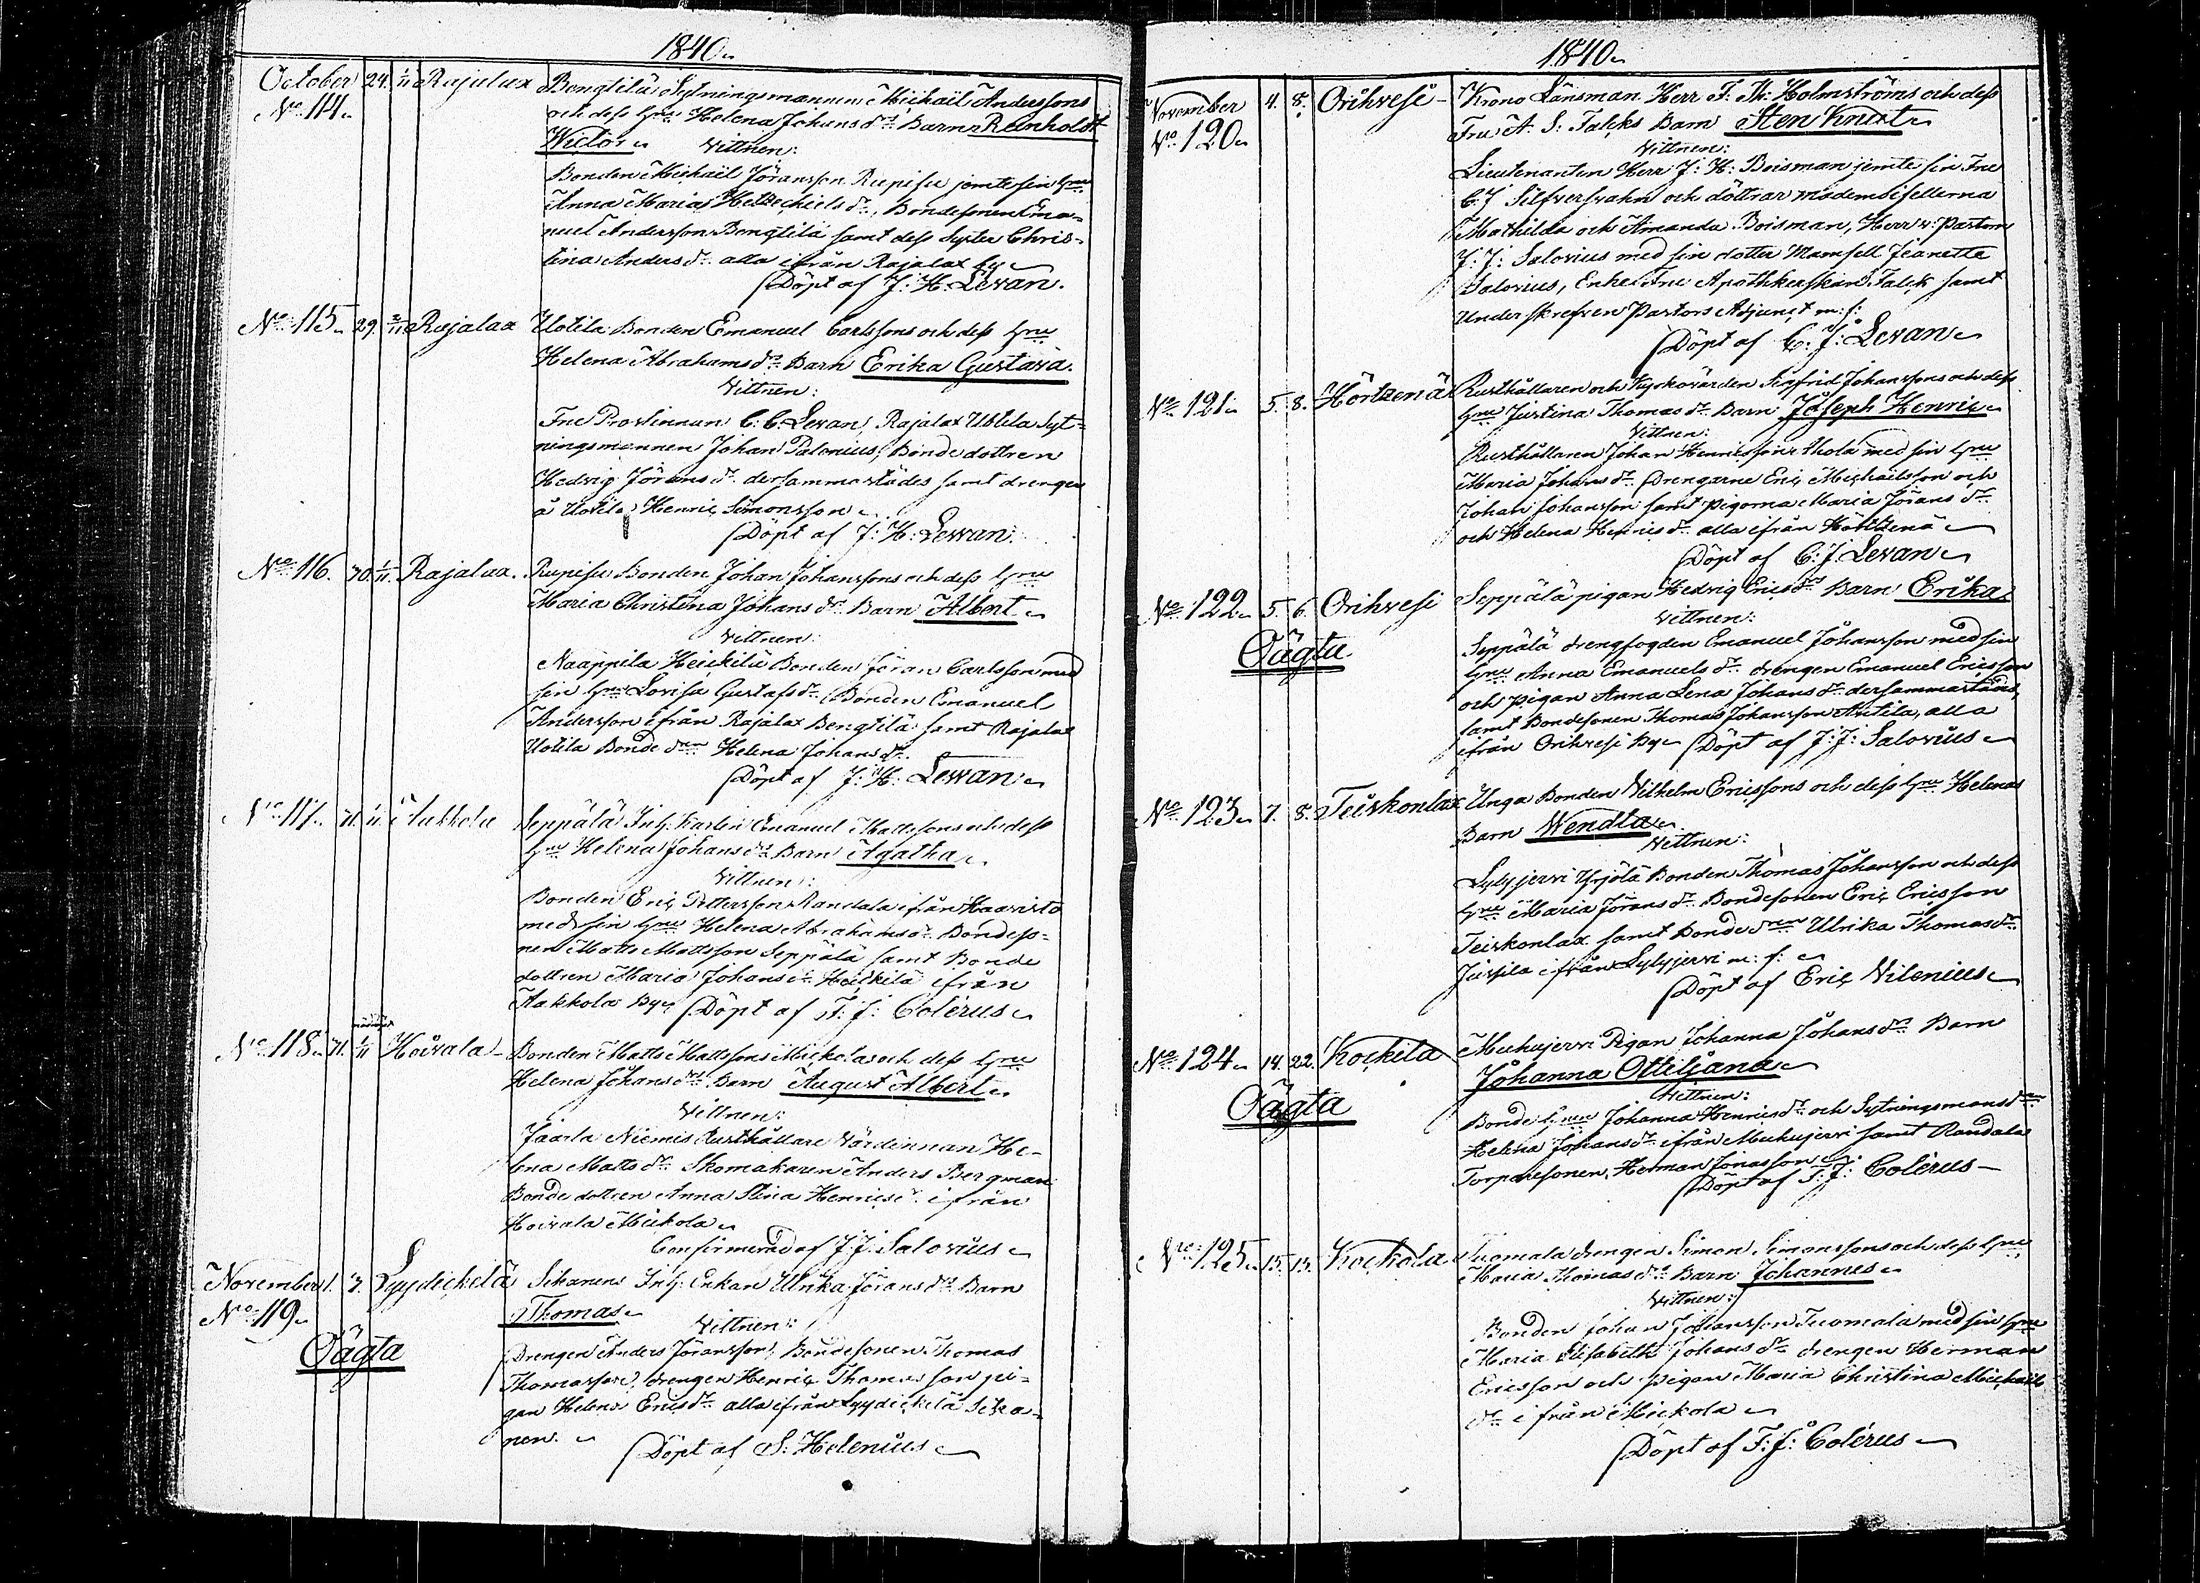 1840
October 24. 1/11 Rajalax Bengtilä Sytningsmannen Michaël Anderssons
No 114. och dess Hru Helena Johansdrs Barn Reinholdt
Victor Vittnen:
Bonden Michaël Jöransson Rupisu jemte sin Hru
Anna Maria Hetzechielsdr, Bondesonen Ema-
nuel Andersson Bengtilä samt dess Syster Chris-
tina Andersdr alla ifrån Rajalax by
Döpt af J: H: Levan.
No 115 29. 2/11 Rajalax Uotila Bonden Emanuel Carlssons och dess Hru
Helena Abrahamsdrs Barn Erika Gustava.
Vittnen:
Fru Prostinnan C: C: Levan, Rajalax Uotila Syt-
ningsmannen Johan Palonius, Bonde dottren
Hedvig Jöransdr dersammastädes samt drengen
å Uotila Henric Simonsson
Döpt af J: H: Levan.
No 116. 30. 1/11 Rajalax. Rupisu Bonden Johan Johanssons och dess Hru
Maria Christina Johansdrs Barn Albert
Vittnen:
Naappila Heickilä Bonden Jöran Carlsson med
sin Hru Lovisa Gustafsdr Bonden Emanuel
Andersson ifrån Rajalax Bengtilä samt Rajalax
Uotila Bonde dren Helena Johansdr.
Döpt af J: H: Levan
No 117 31. 1/11 Aakkola Seppälä Inh. Karlen Emanuel Mattssons och dess
Hru Helena Johansdrs Barn Agatha
Vittnen:
Bonden Eric Pettersson Randala ifrån Haavisto
med sin Hru Helena Abrahamsdr Bondeso-
nen Matts Mattsson Seppälä samt Bonde
dottren Maria Johansdr Heickilä ifrån
Aakkola By Döpt af F: J: Colérus
No 118 31. 1/11 Hoivala Bonden Matts Mattssons Mickola och dess Hru
Helena Johansdrs Barn August Albert
Vittnen:
Jaarla Niemis Rusthållare Värdinnan He-
lena Mattsdr Skomakaren Anders Bergman
Bonde dottren Anna Stina Henricsdr ifrån
Hoivala Mickola
Confirmerad af J: J: Salovius
November 1. 3. Lyydickelä Sihanens Inh. Enkan Ulrika Jöransdrs Barn
No 119 Thomas
Oägta
Vittnen:
Drengen Anders Jöransson, Bondesonen Thomas
Thomasson, drengen Henric Thomasson pi-
gan Helena Ericsdr alla ifrån Lyydickelä Siha-
nen.
Döpt af S: Helenius
1840
November 4. 8. Orihvesi Krono Länsman Herr F: Th: Holmströms och dess
No 120 Fru A: S: Falcks Barn Sten Knut
Vittnen:
Lieutenanten Herr J: H: Boisman jemte sin Fru
C: J Silfversvahn och döttrar mademoisellerna
Mathilda och Amanda Boisman, Herr v: Pastorn
J: J: Salovius med sin dotter Mamsell Jeanette
Salovius, Enke Fru Apothekerskan Falck samt
Underskrefven Pastors Adjunct m: f:
Döpt af C: J: Levan
No 121 5. 8. Hörtzenä Rusthållaren och Kyrkovärden Sigfrid Johanssons och dess
Hru Justina Thomasdrs Barn Joseph Henric
Vittnen:
Rusthållaren Johan Henricsson Ahola med sin Hru
Maria Johansdr Drengarne Eric Michaëlsson och
Johan Johansson samt pigorna Maria Jöransdr
och Helena Henricsdr alla ifrån Hörtzenä
Döpt af C: J: Levan
No 122 5. 6. Orihvesi Seppälä pigan Hedvig Ericsdrs Barn Erika
Oägta
Vittnen:
Seppälä drengfogden Emanuel Johansson med sin
Hru Anna Emanuelsdr drengen Emanuel Ericsson
och pigan Anna Lena Johansdr dersammastäds,
samt Bondesonen Thomas Johansson Anttila, alla
ifrån Orihvesi By Döpt af J: J: Salovius
No 123 7. 8. Teiskonlax Unga Bonden Vilhelm Ericssons och dess Hru Helenas
Barn Wendla
Vittnen:
Lylyjervi Yrjölä Bonden Thomas Johansson och dess
Hru Maria Jöransdr Bondesonen Eric Ericsson
Teiskonlax samt Bonde dren Ulrika Thomasdr
Jussila ifrån Lylyjervi m: f:
Döpt af Eric Vilenius
No 124 14. 22. Kockila Muhujervi Pigan Johanna Johansdrs Barn
Oägta
Johanna Ottiliana
Vittnen:
Bonde Hrun Johanna Henricsdr och Sytningsmansdren
Helena Johansdr ifrån Muhujervi samt Randala
Torparesonen, Herman Jonasson
Döpt af F: J: Colérus
No 125 15. 15. Kockola Tuomala drengen Simon Simonssons och dess Hru
Maria Thomasdrs Barn Johannes
Vittnen:
Bonden Johan Johansson Tuomala med sin Hru
Maria Elisabeth Johansdr drengen Herman
Ericsson och pigan Maria Christina Michaëls
dr ifrån Mickola
Döpt af F: J: Colérus